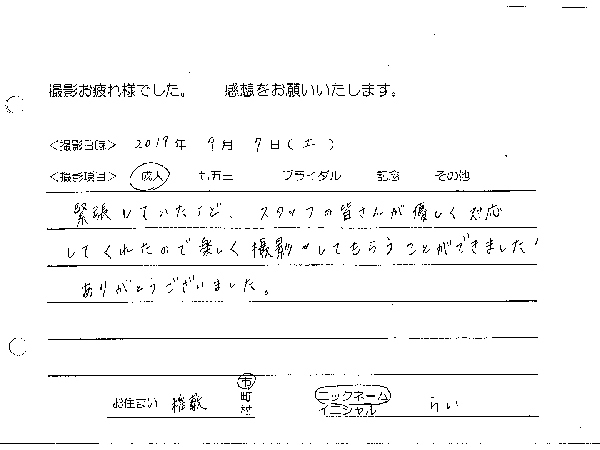 撮影お疲れ様でした。 感想をお願いいたします。
<撮影日時> 2019年 9月 7日(土)
<撮影項目> 成人 七五三 ブライダル 記念 その他
緊張していたけど、スタッフの皆さんが優しく対応
してくれたので楽しく撮影してもらうことができました!
ありがとうございました。
お住まい 稲敷 市町村 ニックネーム イニシャル らい